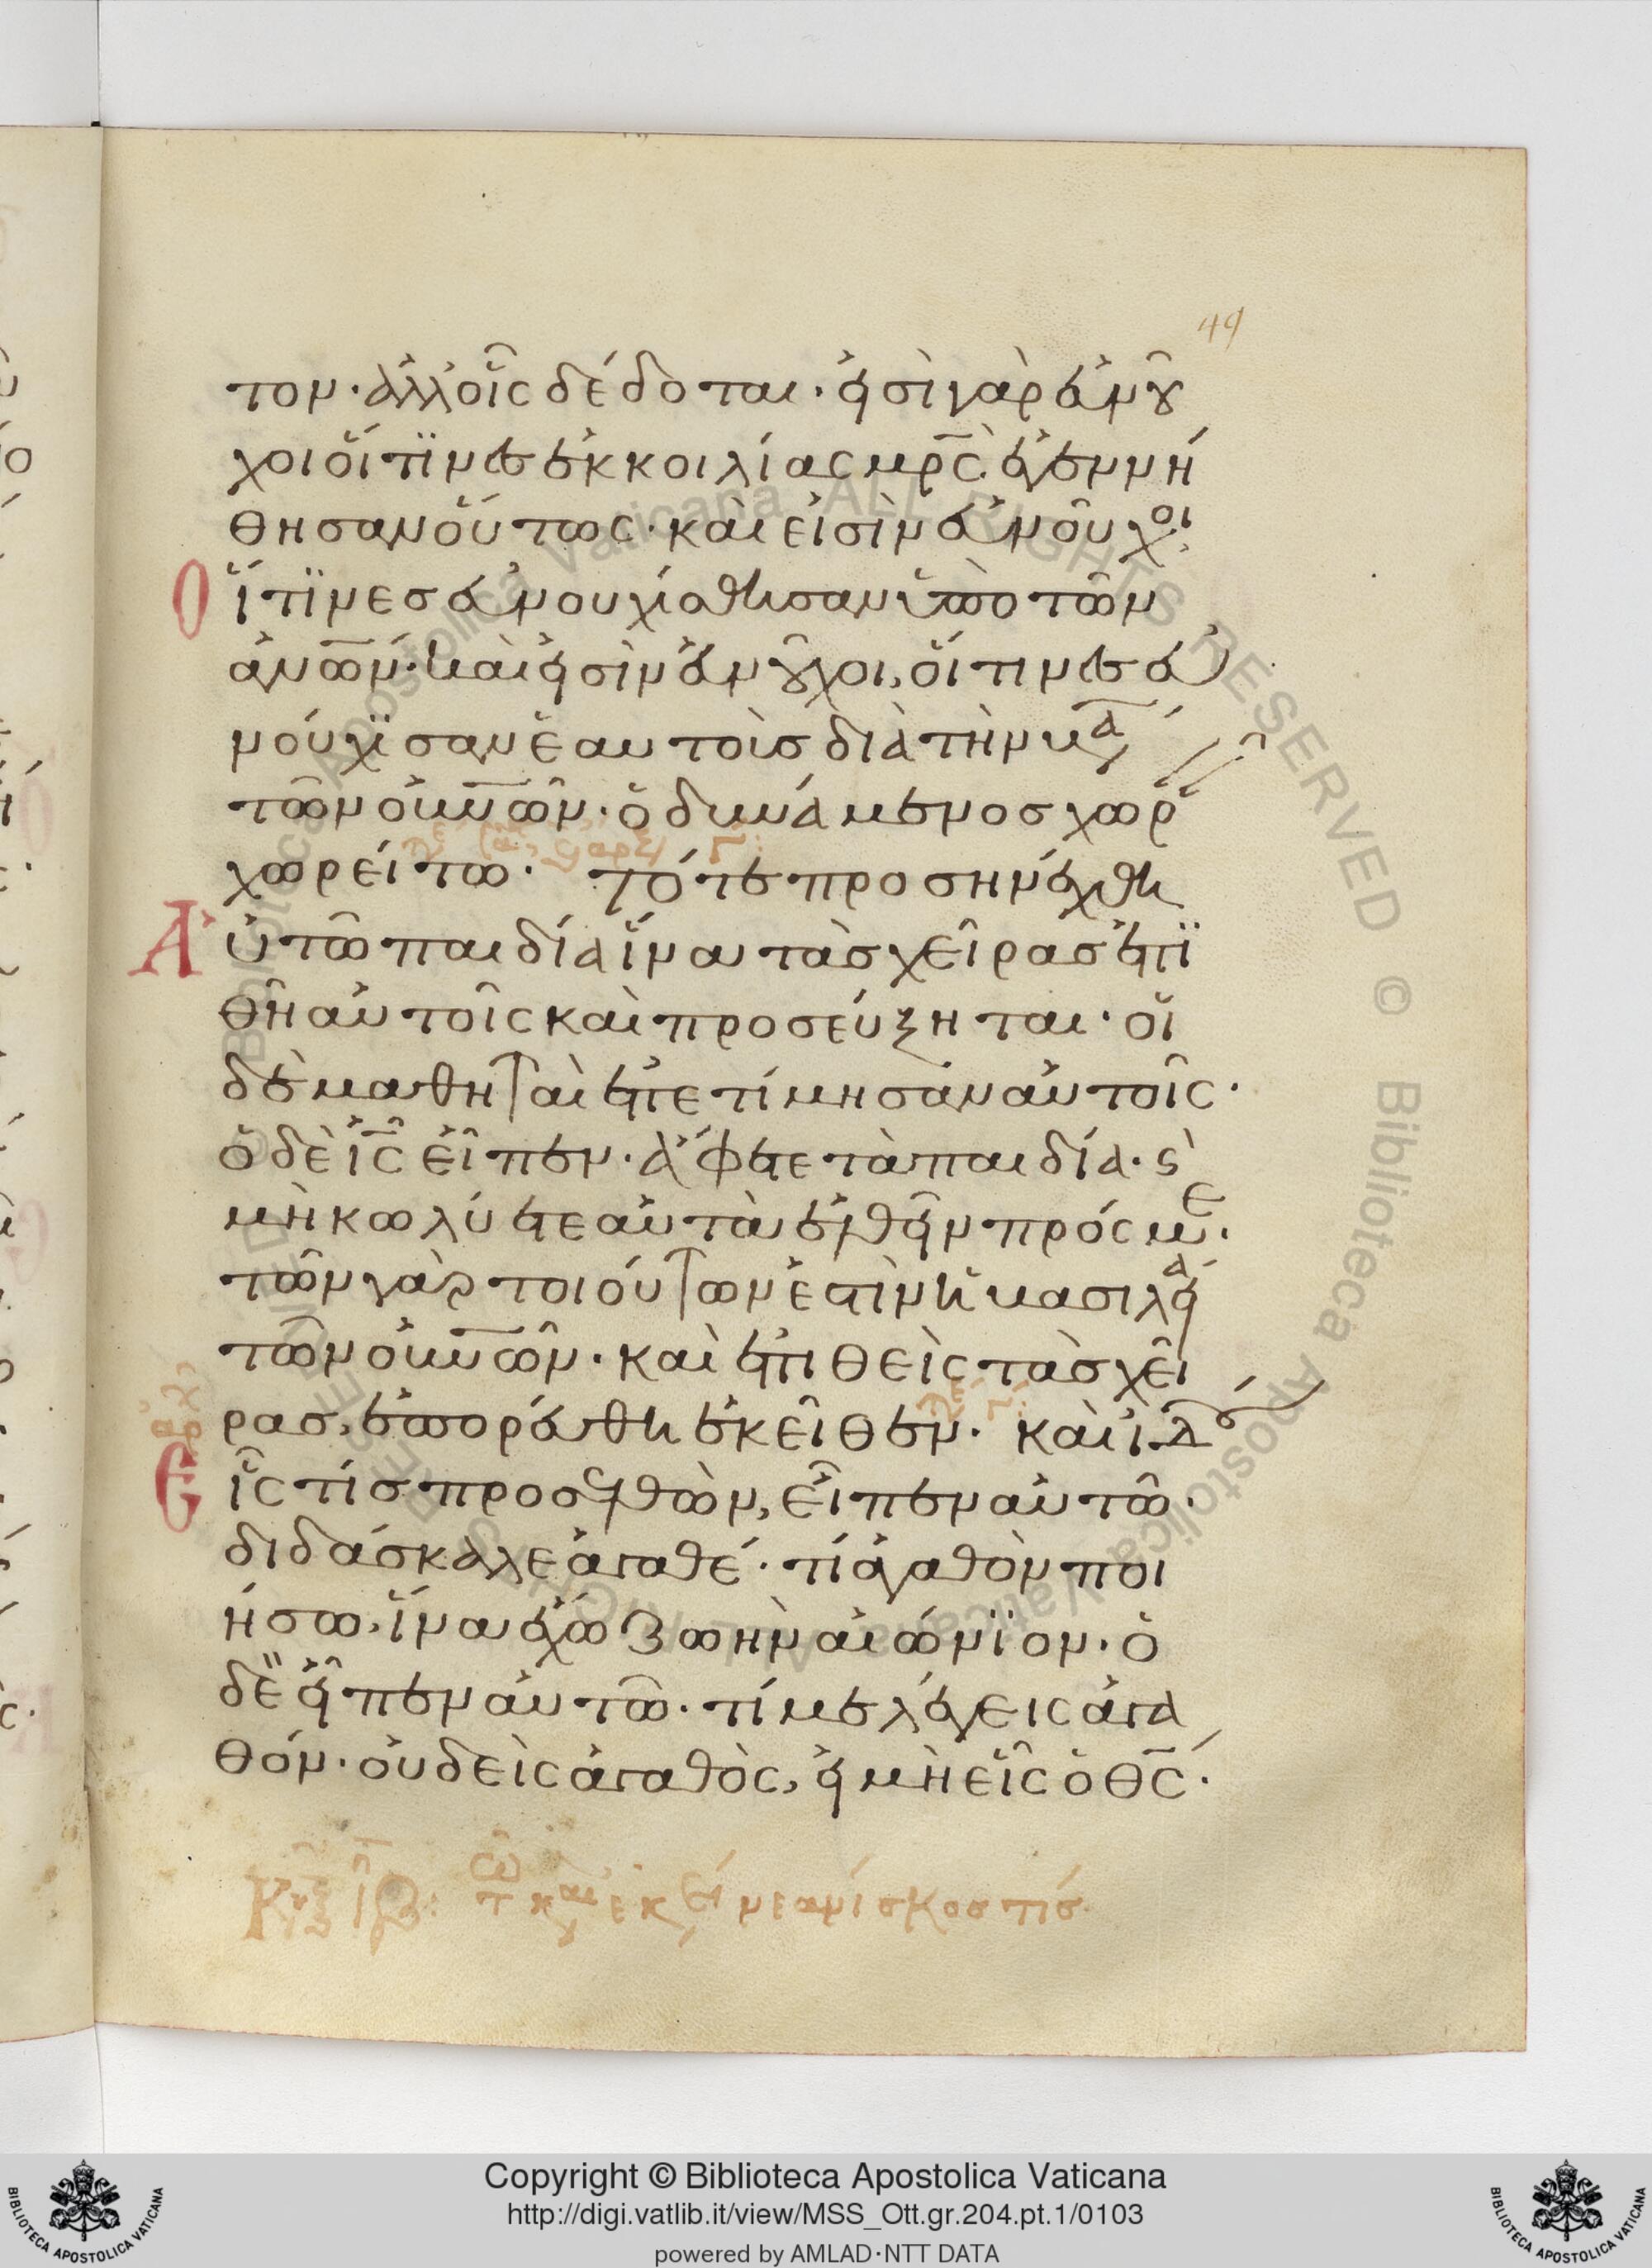 49
τον· ἀλλ' οἷς δέδοται· εἰσὶ γὰρ εὐνοῦ
χοι οἵτϊνες ἐκ κοιλίας μρ̅ς̀ ἐγεννή
θησαν οὕτως· καὶ εἰσὶν εὐνοῦχοι
Οἵτϊνες εὐνουχίσθησαν ὑπὸ τῶν
ἀν̅ω̅ν· καὶ εἰσὶν εὐνοῦχοι, οἵτινες εὐ
νούχϊσαν ἑαυτοὺς διὰ τὴν βα
τῶν οὐν̅ῶν· ὁ δυνάμενος χωρεῖ
χωρείτω· τότε προσηνέχθη
Αὐτῶ παιδία ἵνα τὰς χεῖρας ἐπϊ
θῆ αὐτοῖς καὶ προσεύξηται· οἱ
δὲ μαθηταὶ ἐπετίμησαν αὐτοῖς·
ὁ δὲ ἰ̅ς̅ εἶπεν· ἄφετε τὰ παιδία· ϗ
μὴ κωλύετε αὐτὰ ἐλθεῖν πρός με·
τῶν γὰρ τοιούτων ἐστὶν ἡ βασιλεία
τῶν οὐν̅ῶν· καὶ ἐπιθεὶς τὰς χεῖ
ρας, ἐπορεύθη ἐκεῖθεν· καὶ ἰδοὺ
Εἷς τίς προσελθὼν, εἶπεν αὐτῶ·
διδάσκαλε ἀγαθέ· τί ἀγαθὸν ποι
ήσω, ἵνα ἔχω ζωὴν αἰώνϊον· ὁ
δὲ εἶπεν αὐτῶ· τί με λέγεις ἀγα
θόν· οὐδεὶς ἀγαθὸς, εἰ μὴ εἷς ὁ θ̅ς̅·
Κυ ιβ: τω κ εκει νεανίσκος τίς
Copyright © Biblioteca Apostolica Vaticana
http://digi.vatlib.it/view/MSS_Ott.gr.204.pt.1/0103
powered by AMLAD·NTT DATA